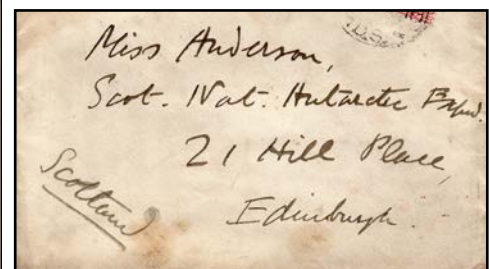 Miss Anderson,
Scot. Nat. Antarctic Expd.
21 Hill Place,
Edinburgh.
Scotland